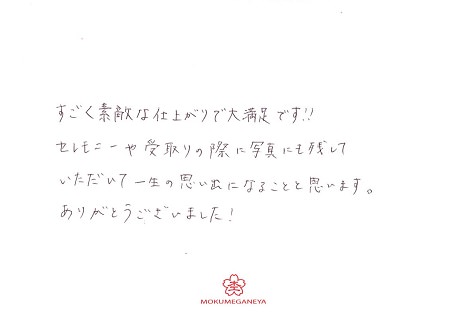 すごく素敵な仕上がりで大満足です!!
セレモニーや受取りの際に写真にも残して
いただいて一生の思い出になることと思います。
ありがとうございました!
杢
MOKUMEGANEYA